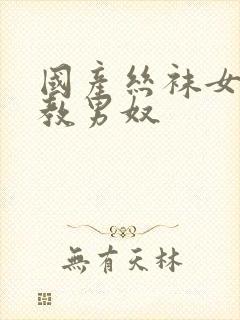 國產絲袜女
教男奴
無有天林